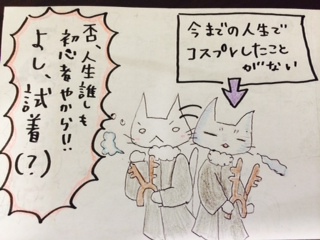 今までの人生で
コスプレしたこと
がない
否、人生誰しも
初心者やから!!
よし、試着
(?)